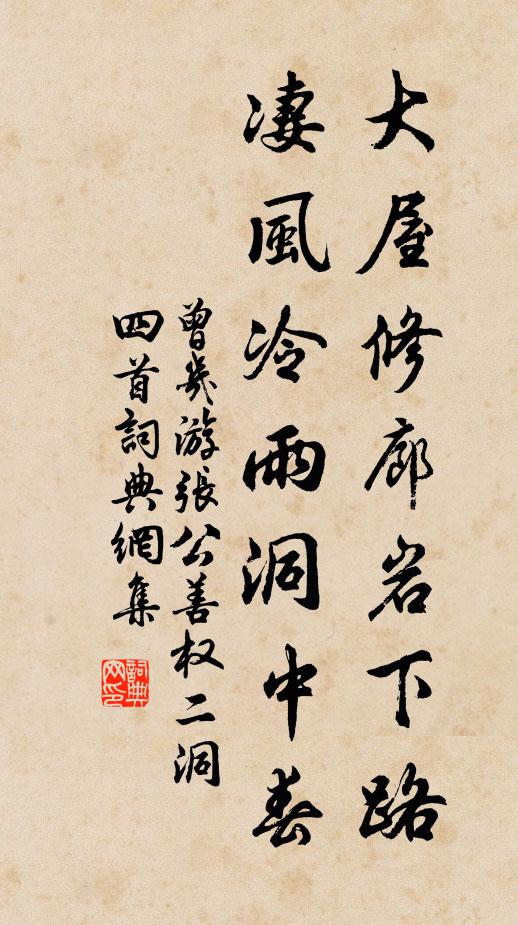 大屋修廊岩下路
凄風冷雨洞中春
曾幾游張公善权二洞
四首詞典網集
詞典网印